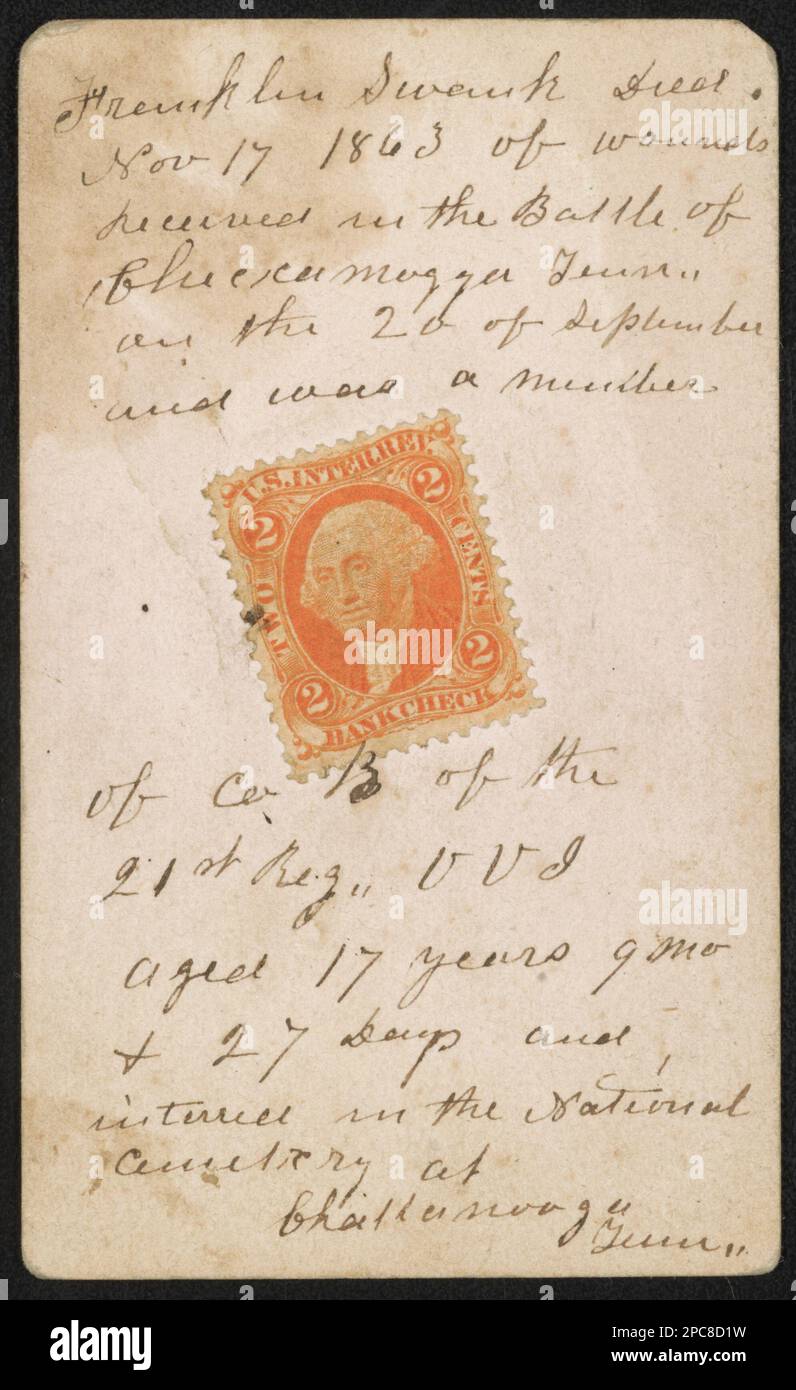 Franklin Swank Died.
Nov 17 1863 of wounds
received in the Battle of
Chickamogga Tenn,,
on the 20 of September
and was a member
U.S. INTER. REV.
2 2
TWO CENTS
2 2
BANK CHECK
of Co B of the
21st Reg,, V V I
aged 17 years 9 mo
+ 27 Days and
interred in the National
Cemetery at
Chattanooga
Tenn,,
alamy
alamy
alamy
a
a
a
a
alamy
Image ID: 2PC8D1W
www.alamy.com